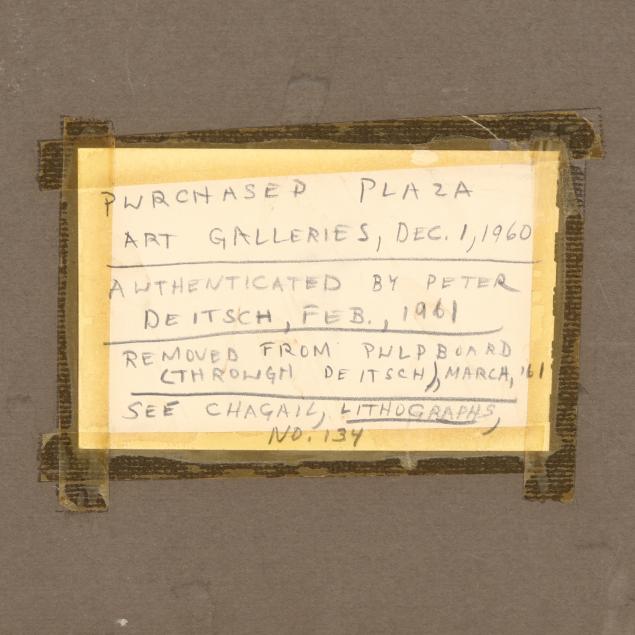 PURCHASED PLAZA
ART GALLERIES, DEC. 1, 1960
AUTHENTICATED BY PETER
DEITSCH, FEB., 1961
REMOVED FROM PULPBOARD
(THROUGH DEITSCH), MARCH, '61
SEE CHAGALL, LITHOGRAPHS,
NO. 134